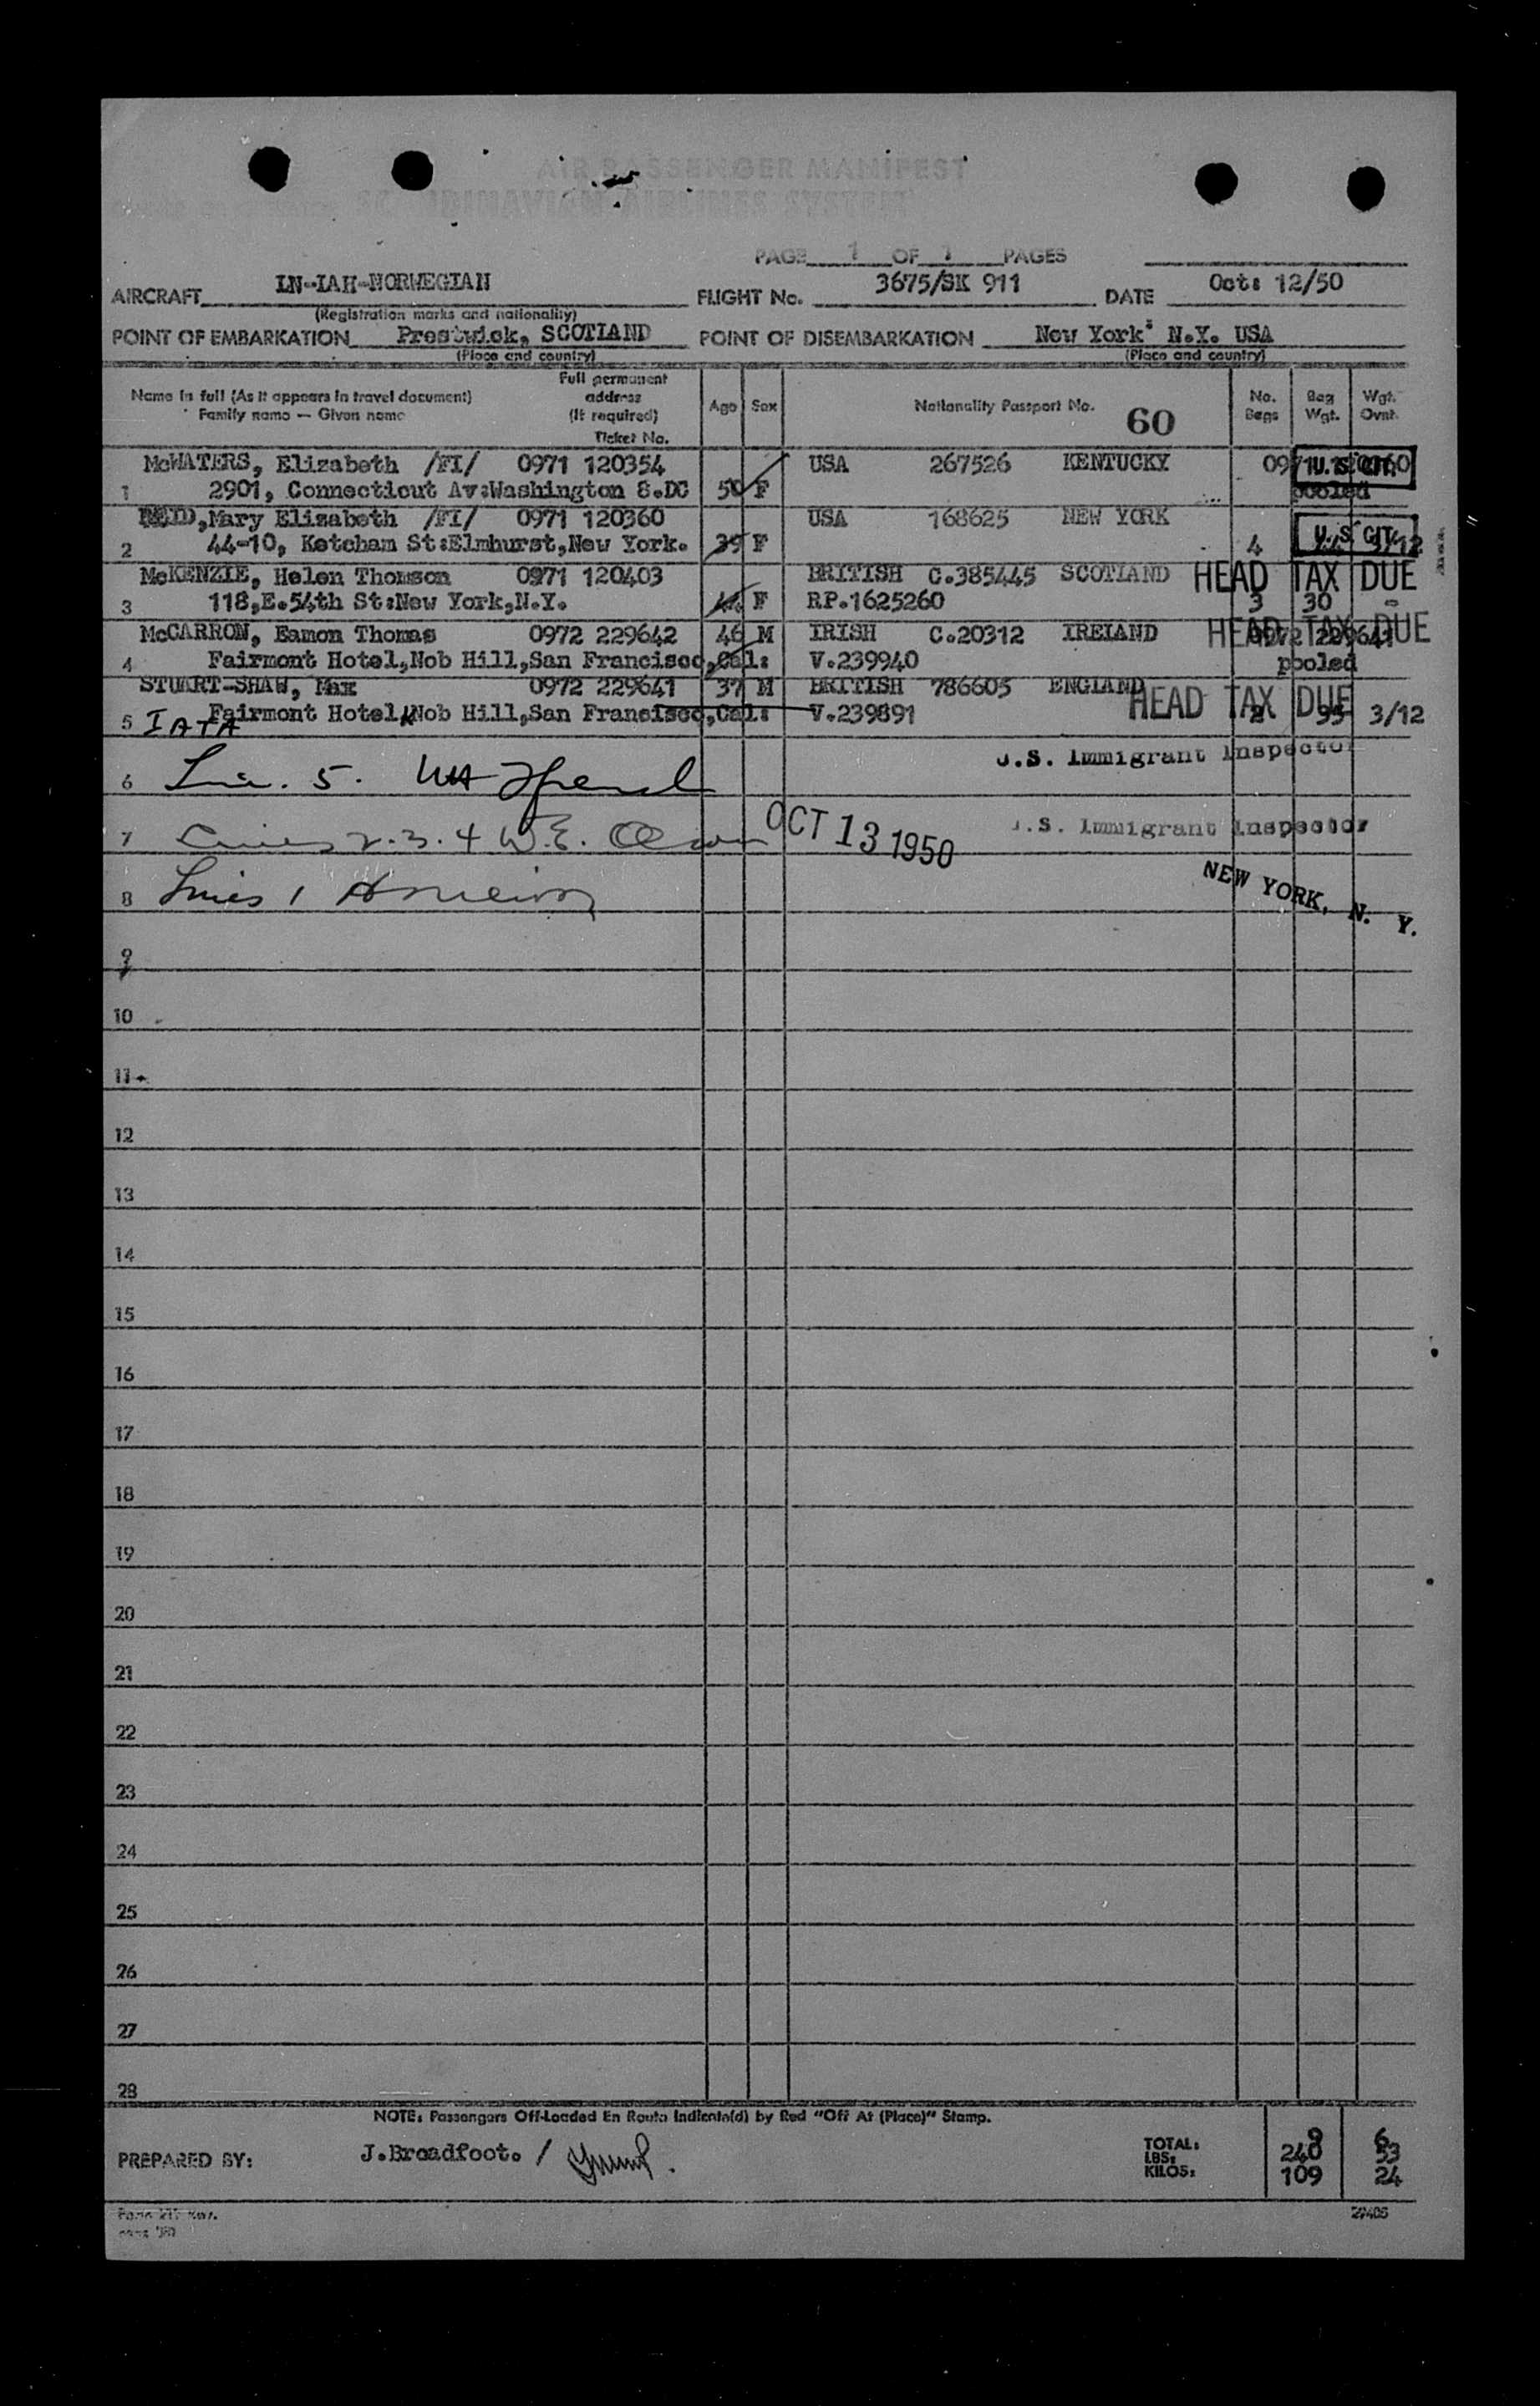 AIR PASSENGER MANIFEST
SCANDINAVIAN AIRLINES SYSTEM
PAGE 1 OF 1 PAGES
AIRCRAFT LN-IAH-NORWEGIAN FLIGHT No. 3675/SK 911 DATE Oct: 12/50
(Registration marks and nationality)
POINT OF EMBARKATION Prestwick, SCOTLAND POINT OF DISEMBARKATION New York N.Y. USA
(Place and country) (Place and country)
Name in full (As it appears in travel document)
Family name — Given name
Full permanent
address
(If required)
Ticket No.
Age Sex Nationality Passport No. 60 No. Bags Bag Wgt. Wgt. Ovnt.
McWATERS, Elizabeth /FI/ 0971 120354 USA 267526 KENTUCKY U.S. CIT.
1 2901, Connecticut Av:Washington 8.DC 50 F pooled
REID, Mary Elizabeth /FI/ 0971 120360 USA 168625 NEW YORK U.S. CIT.
2 44-10, Ketcham St:Elmhurst,New York. 39 F 4 3/12
McKENZIE, Helen Thomson 0971 120403 BRITISH C.385445 SCOTLAND HEAD TAX DUE
3 118,E.54th St:New York,N.Y. 44 F RP.1625260 3 30 -
McCARRON, Eamon Thomas 0972 229642 46 M IRISH C.20312 IRELAND HEAD TAX DUE 0972 229641
4 Fairmont Hotel,Nob Hill,San Francisco,Cal: V.239940 pooled
STUART-SHAW, Max 0972 229641 37 M BRITISH 786605 ENGLAND HEAD TAX DUE
5 IATA Fairmont Hotel,Nob Hill,San Francisco,Cal: V.239891 2 95 3/12
6 Lin. 5. U.S. Immigrant Inspector
7 Lines 2.3.4 W.E. Olson OCT 13 1950 U.S. Immigrant Inspector
8 Lines 1 NEW YORK, N. Y.
9
10
11
12
13
14
15
16
17
18
19
20
21
22
23
24
25
26
27
28
NOTE: Passengers Off-Loaded En Route Indicate(d) by Red "Off At (Place)" Stamp.
PREPARED BY: J.Broadfoot. /
TOTAL: 9 6
LBS: 240 53
KILOS: 109 24